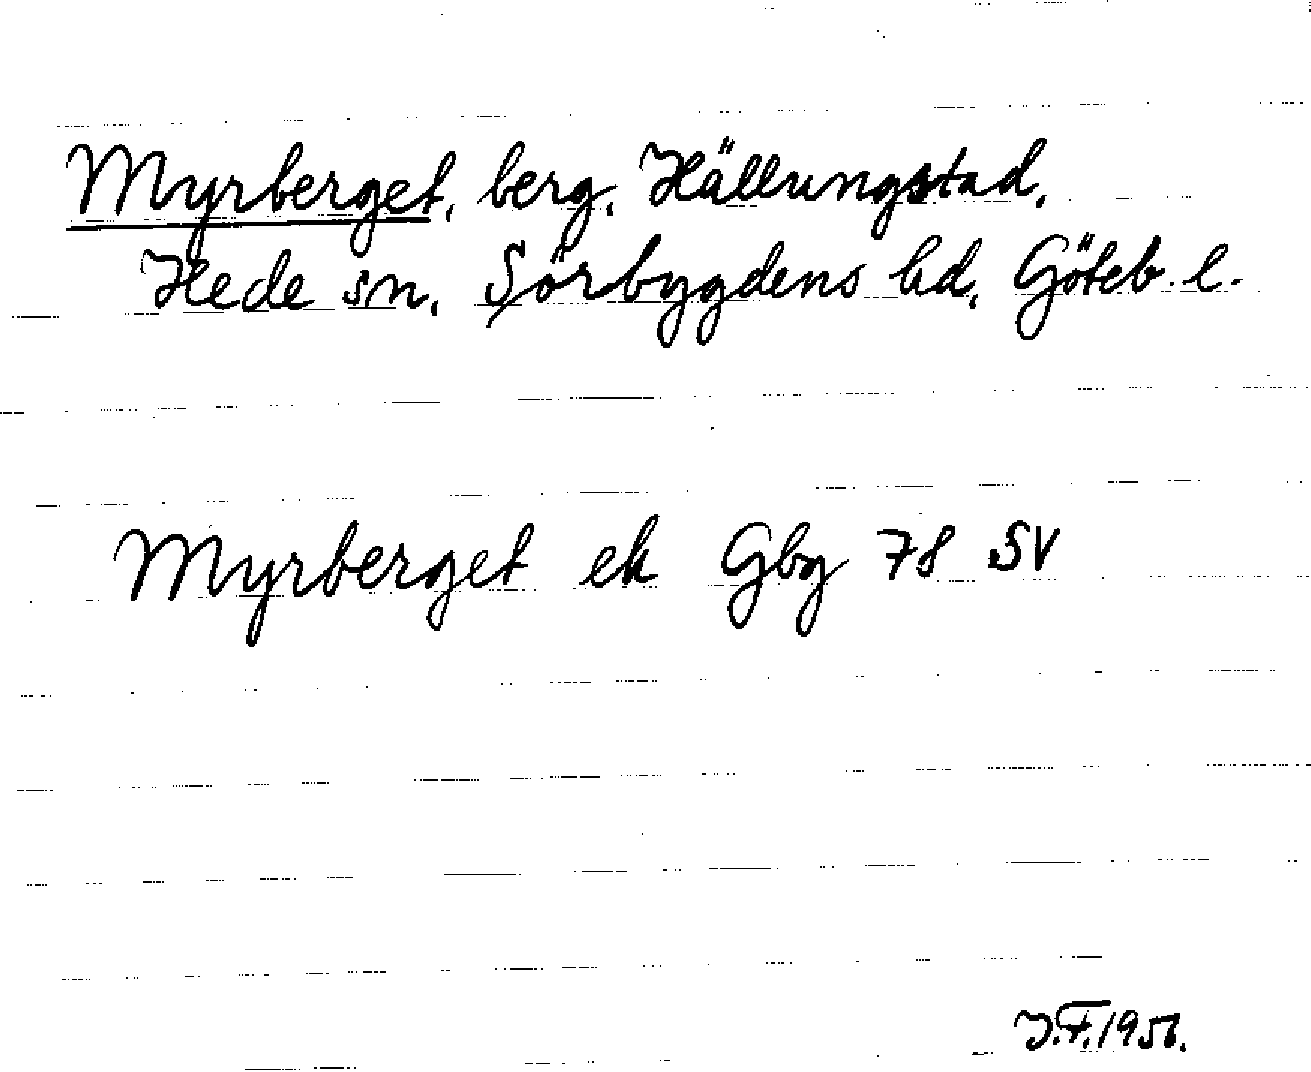 Myrberget, berg, Hällungstad,
Hede sn, Sörbygdens hd, Göteb. l.
Myrberget ek Gbg 78 SV
J.F. 1956.